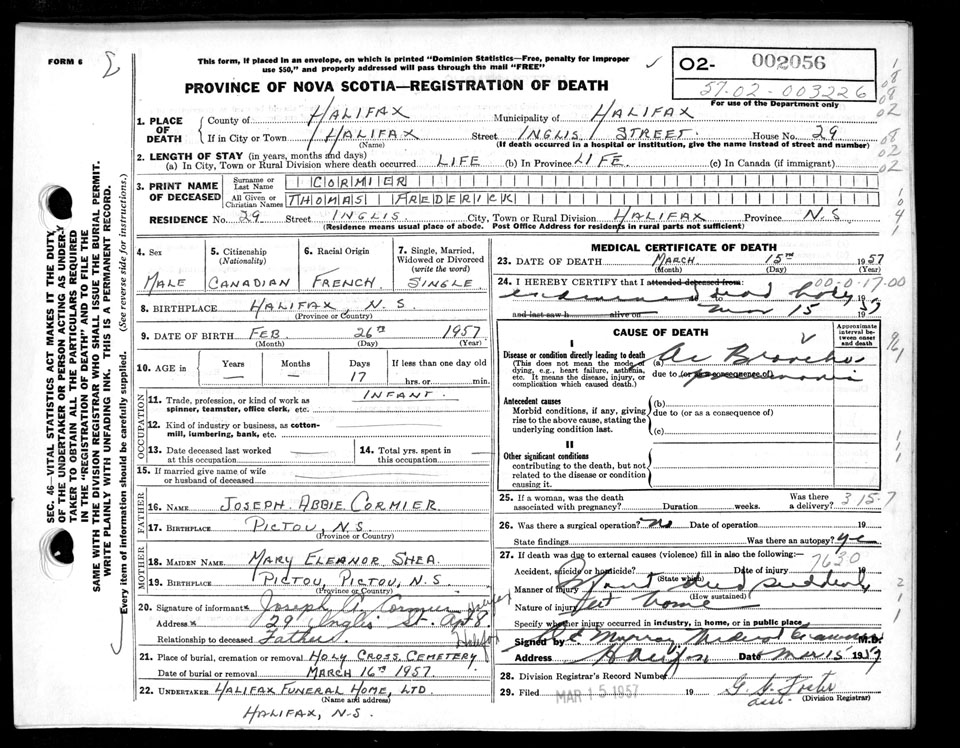 FORM 6
This form, if placed in an envelope, on which is printed "Dominion Statistics—Free, penalty for improper
use $50," and properly addressed will pass through the mail "FREE"
PROVINCE OF NOVA SCOTIA—REGISTRATION OF DEATH
O2- 002056
57-02-003226
For use of the Department only
SEC. 46—VITAL STATISTICS ACT MAKES IT THE DUTY
OF THE UNDERTAKER OR PERSON ACTING AS UNDER-
TAKER TO OBTAIN ALL THE PARTICULARS REQUIRED
IN THE "REGISTRATION OF DEATH" AND TO FILE THE
SAME WITH THE DIVISION REGISTRAR WHO SHALL ISSUE THE BURIAL PERMIT.
WRITE PLAINLY WITH UNFADING INK. THIS IS A PERMANENT RECORD.
Every item of information should be carefully supplied. (See reverse side for instructions.)
1. PLACE OF DEATH
County of HALIFAX Municipality of HALIFAX
If in City or Town HALIFAX Street INGLIS STREET. House No. 29
(Name) (If death occurred in a hospital or institution, give the name instead of street and number)
2. LENGTH OF STAY (in years, months and days)
(a) In City, Town or Rural Division where death occurred LIFE (b) In Province LIFE (c) In Canada (if immigrant)
3. PRINT NAME OF DECEASED
Surname or Last Name CORMIER
All Given or Christian Names THOMAS FREDERICK
RESIDENCE No. 29 Street INGLIS. City, Town or Rural Division HALIFAX Province N.S
(Residence means usual place of abode. Post Office Address for residents in rural parts not sufficient)
4. Sex
MALE
5. Citizenship (Nationality)
CANADIAN
6. Racial Origin
FRENCH
7. Single, Married, Widowed or Divorced (write the word)
SINGLE
8. BIRTHPLACE HALIFAX, N.S
(Province or Country)
9. DATE OF BIRTH FEB 26TH 1957
(Month) (Day) (Year)
10. AGE in Years — Months — Days 17 If less than one day old hrs. or min.
OCCUPATION
11. Trade, profession, or kind of work as spinner, teamster, office clerk, etc. INFANT.
12. Kind of industry or business, as cotton-mill, lumbering, bank, etc.
13. Date deceased last worked at this occupation
14. Total yrs. spent in this occupation
15. If married give name of wife or husband of deceased
FATHER
16. NAME JOSEPH. ABBIE CORMIER
17. BIRTHPLACE PICTOU, N.S.
(Province or Country)
MOTHER
18. MAIDEN NAME MARY ELEANOR SHEA
19. BIRTHPLACE PICTOU, PICTOU, N.S.
(Province or Country)
20. Signature of informant Joseph A. Cormier
Address 29 Inglis St. Apt 8 Halifax
Relationship to deceased Father
21. Place of burial, cremation or removal HOLY CROSS CEMETERY
Date of burial or removal MARCH 16TH 1957.
22. UNDERTAKER HALIFAX FUNERAL HOME, LTD.
(Name and address)
HALIFAX, N.S.
MEDICAL CERTIFICATE OF DEATH
23. DATE OF DEATH MARCH 15TH 1957
(Month) (Day) (Year)
24. I HEREBY CERTIFY that I attended deceased from: 000-0-17.00
examined dead body
to Mar 15 1957
and last saw h alive on 19
CAUSE OF DEATH
Approximate interval between onset and death
I
Disease or condition directly leading to death
(This does not mean the mode of dying, e.g., heart failure, asthenia, etc. It means the disease, injury, or complication which caused death.)
(a) Ac Broncho
due to (or as a consequence of) pneumonia
Antecedent causes
Morbid conditions, if any, giving rise to the above cause, stating the underlying condition last.
(b)
due to (or as a consequence of)
(c)
II
Other significant conditions
contributing to the death, but not related to the disease or condition causing it.
25. If a woman, was the death associated with pregnancy? Duration weeks. Was there a delivery? 315-7
26. Was there a surgical operation? no Date of operation 19
State findings Was there an autopsy? yes
27. If death was due to external causes (violence) fill in also the following:—
7630
Accident, suicide or homicide? Date of injury 19
(State which)
Manner of injury died suddenly
(How sustained)
Nature of injury at home
Specify whether injury occurred in industry, in home, or in public place
Signed by Murray Medical Examiner M.D.
Address Halifax Date Mar 15 1957
28. Division Registrar's Record Number
29. Filed MAR 15 1957 19
(Division Registrar)